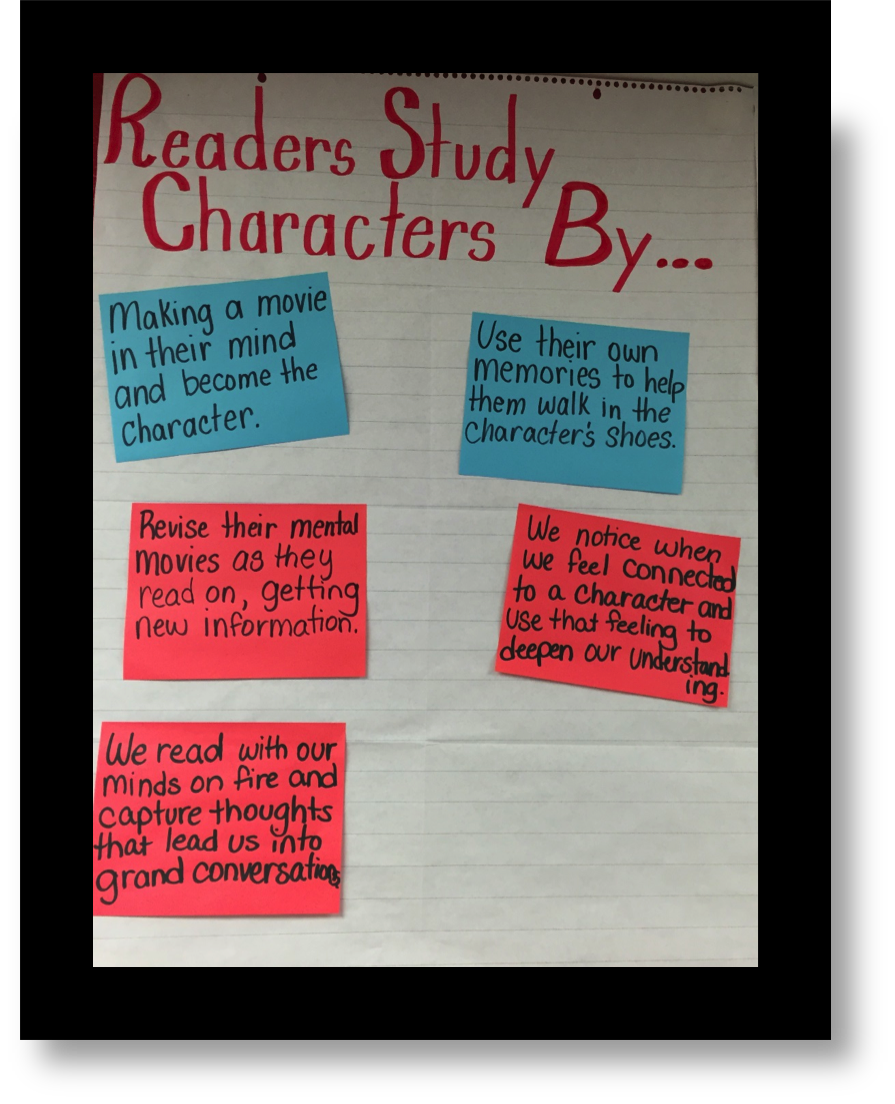 Readers Study
Characters By...
Making a movie
in their mind
and become the
character.
Use their own
memories to help
them walk in the
character's shoes.
Revise their mental
movies as they
read on, getting
new information.
We notice when
we feel connected
to a character and
use that feeling to
deepen our understand
ing.
We read with our
minds on fire and
capture thoughts
that lead us into
grand conversations